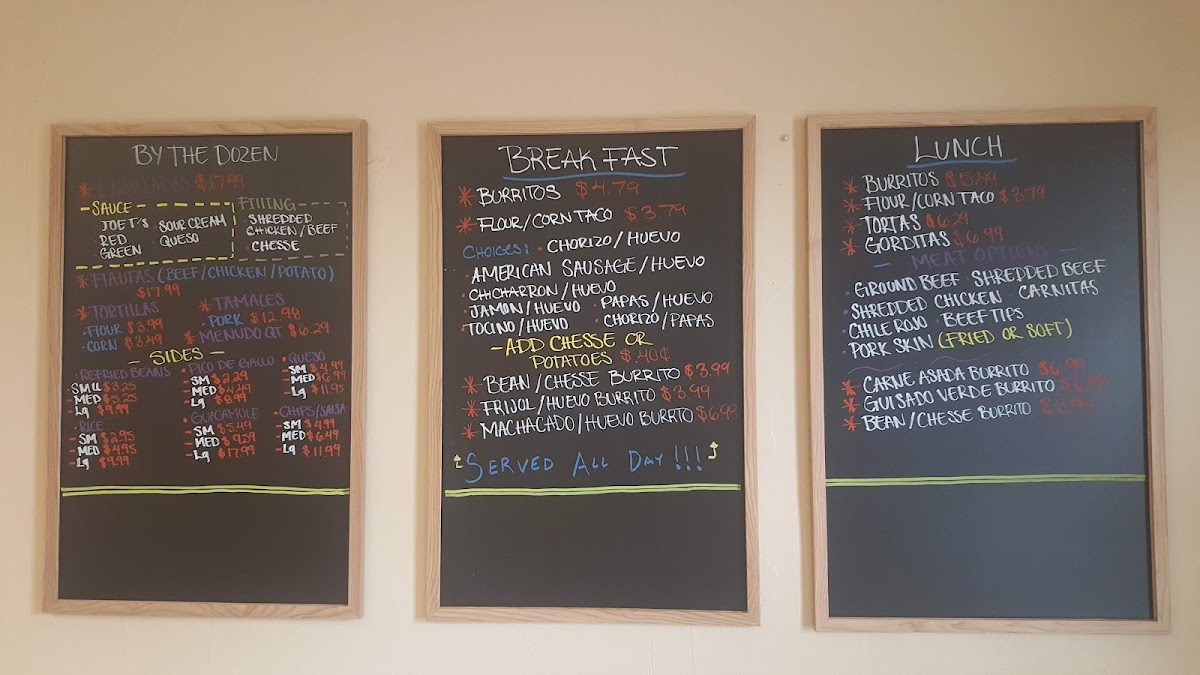 BY THE DOZEN
* ENCHILADAS $17.99
- SAUCE -
JOET'S
RED
GREEN
SOUR CREAM
QUESO
FILLING
SHREDDED
CHICKEN/BEEF
CHESSE
* FLAUTAS (BEEF/CHICKEN/POTATO)
$17.99
* TORTILLAS
- FLOUR $3.99
- CORN $3.49
* TAMALES
- PORK $12.98
* MENUDO QT $6.29
- SIDES -
REFRIED BEANS
SMLL $3.25
MED $5.25
Lg $9.99
RICE
SM $2.95
MED $4.95
Lg $9.99
PICO DE GALLO
SM $2.29
MED $4.49
Lg $8.99
GUACAMOLE
SM $5.49
MED $9.59
Lg $17.99
QUESO
SM $4.99
MED $6.99
Lg $11.95
CHIPS/SALSA
SM $4.99
MED $6.49
Lg $11.99
BREAKFAST
* BURRITOS $4.79
* FLOUR/CORN TACO $3.79
CHOICES: • CHORIZO/HUEVO
• AMERICAN SAUSAGE/HUEVO
• CHICHARRON/HUEVO
• JAMON/HUEVO • PAPAS/HUEVO
• TOCINO/HUEVO • CHORIZO/PAPAS
- ADD CHESSE OR
POTATOES $.40¢
* BEAN/CHESSE BURRITO $3.99
* FRIJOL/HUEVO BURRITO $3.99
* MACHACADO/HUEVO BURRTO $6.99
SERVED ALL DAY!!!
LUNCH
* BURRITOS $5.49
* FLOUR/CORN TACO $3.79
* TORTAS $6.29
* GORDITAS $6.99
- MEAT OPTIONS -
• GROUND BEEF • SHREDDED BEEF
• SHREDDED CHICKEN CARNITAS
• CHILE ROJO • BEEF TIPS
• PORK SKIN (FRIED OR SOFT)
* CARNE ASADA BURRITO $6.99
* GUISADO VERDE BURRITO
* BEAN/CHESSE BURRITO $3.99